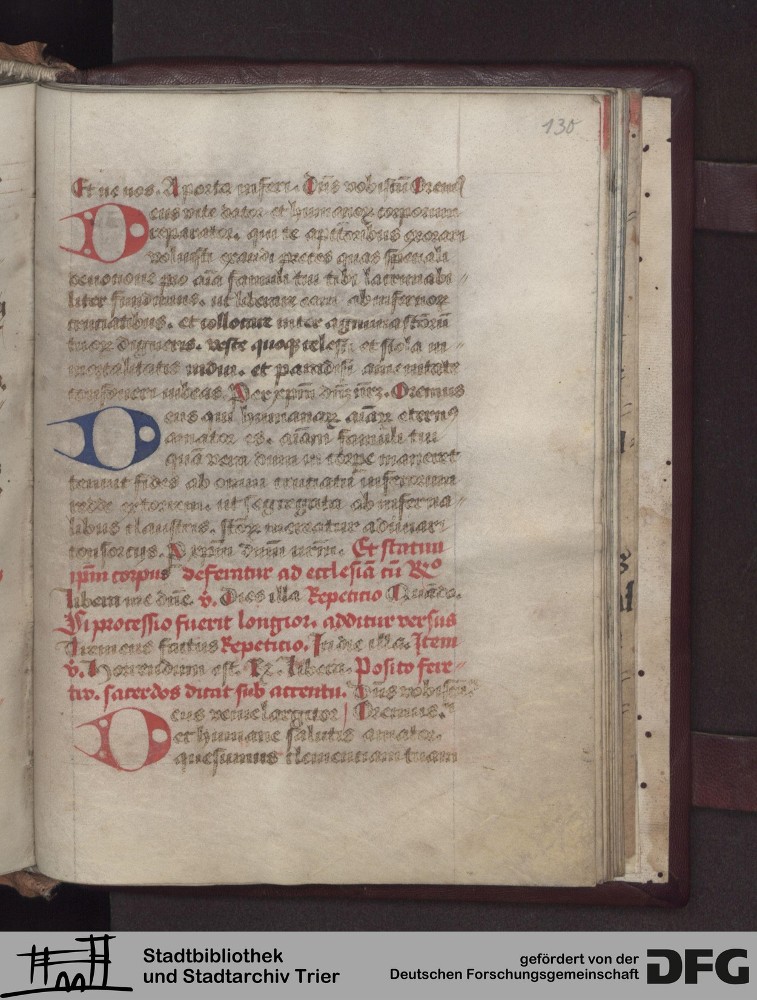 130
Et ne nos. A porta inferi. Dñs vobiscũ Orem9
Deus vite dator et humanoꝝ corporum
reparator. qui te a pctoribus exorari
voluisti exaudi preces quas spetiali
deuotione pro aĩa famuli tui tibi lacrimabi
liter fundimus. ut liberare eam ab infernoꝝ
cruciatibus. et collocare inter agmina sctõrũ
tuoꝝ digneris. veste quoqꝫ celesti et stola in
mortalitatis indui. et paradisi amenitate
confoueri iubeas. Per xpm dñm nrm. Oremus
Deus qui humanaꝝ aĩaꝝ etern9
amator es. aĩam famuli tui
quã vera dum in corpe maneret
tenuit fides ab omni cruciatu inferorum
redde extorrem. ut segregata ab inferna
libus claustris. sctõꝝ mereatur adunari
consortijs. P xpm dnm nrm. Et statim
ipm corpus deferatur ad ecclesiã cũ Ro
Libera me dñe. v. Dies illa Repeticio Quãdo.
Si processio fuerit longior. additur versus
Tremens factus Repeticio. In die illa. Item
v. Horrendum est. R. Libera. Posito fere
tro. sacerdos dicat sub accentu. Dñs vobiscũ.
Deus venie largitor Oremus.
et humane salutis amator.
quesumus clementiam tuam
Stadtbibliothek
und Stadtarchiv Trier
gefördert von der
Deutschen Forschungsgemeinschaft
DFG